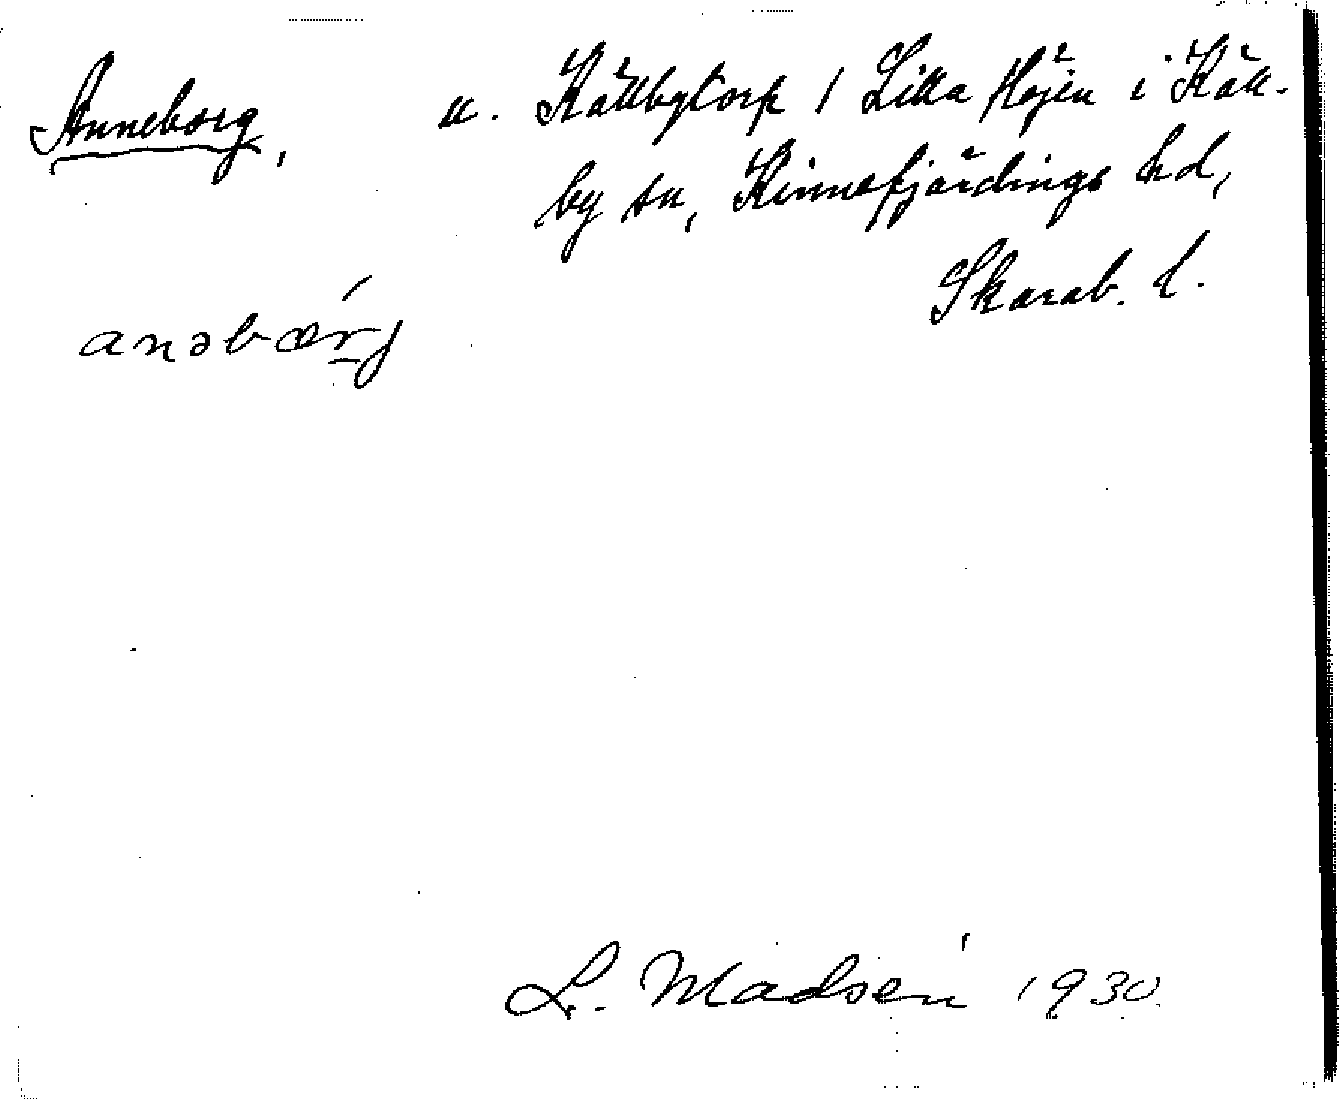 Anneborg, u. Källbytorp / Lilla Höjen i Käll-
by sn, Kinnefjärdings hd,
Skarab. l.
anəbœrj
L. Madsén 1930